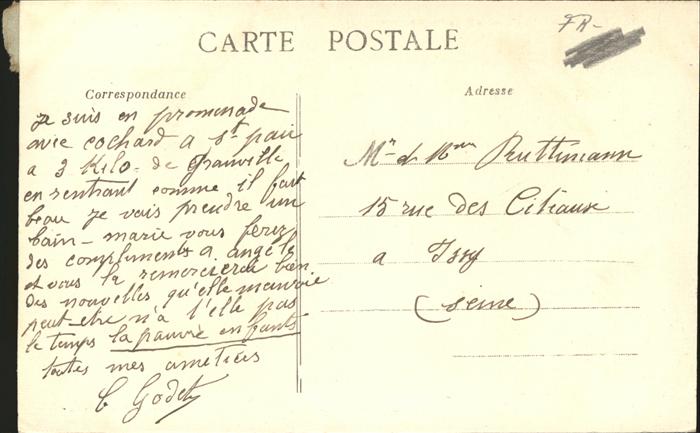 FR-
CARTE POSTALE
Correspondance
je suis en promenade
avec cochard a st pair
a 3 Kilo. de Granville
en rentrant comme il fait
beau je vais prendre un
bain-marie vous ferez
des compliments a angèle
et vous la remercierez bien
des nouvelles qu'elle m'envoie
peut-etre n'a t'elle pas
le temps la pauvre enfants
toutes mes ametiées
Godet
Adresse
Mr et Mme Ruttimann
15 rue des Citeaux
a Issy
(seine)